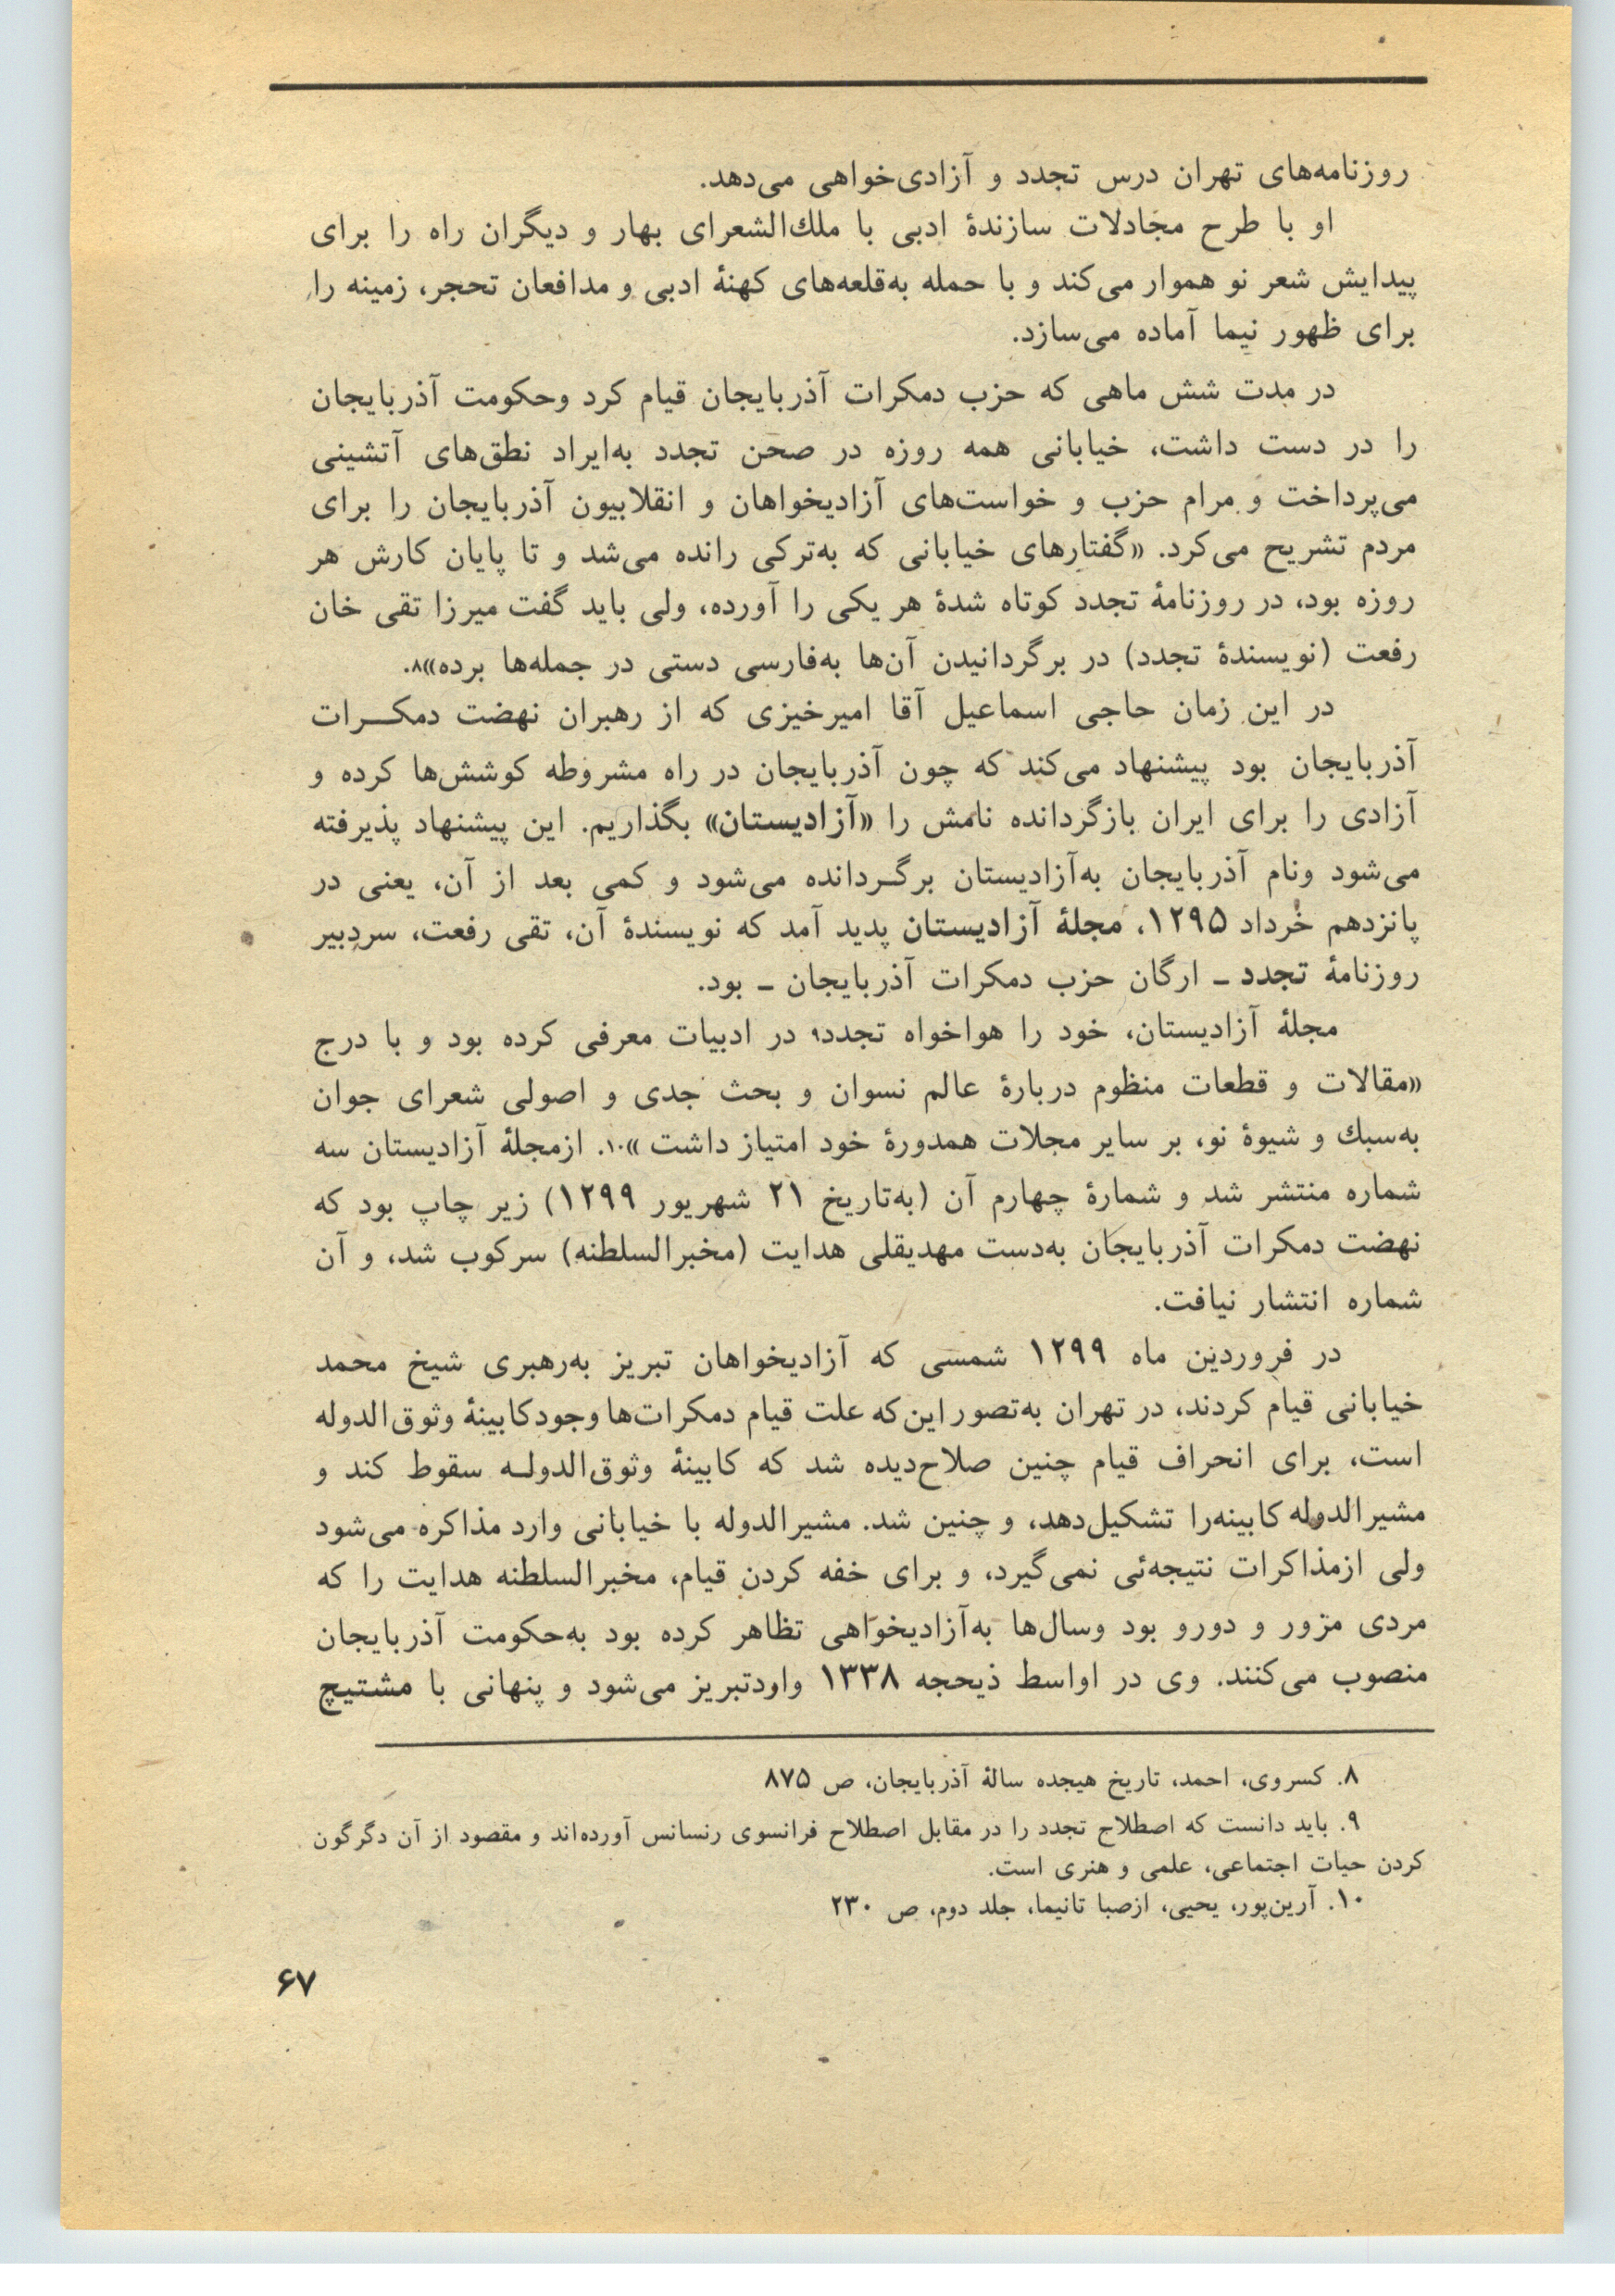 روزنامه‌های تهران درس تجدد و آزادی‌خواهی می‌دهد.
او با طرح مجادلات سازندهٔ ادبی با ملك‌الشعرای بهار و دیگران راه را برای
پیدایش شعر نو هموار می‌کند و با حمله به‌قلعه‌های کهنهٔ ادبی و مدافعان تحجر، زمینه را
برای ظهور نیما آماده می‌سازد.
در مدت شش ماهی که حزب دمکرات آذربایجان قیام کرد وحکومت آذربایجان
را در دست داشت، خیابانی همه روزه در صحن تجدد به‌ایراد نطق‌های آتشینی
می‌پرداخت و مرام حزب و خواست‌های آزادیخواهان و انقلابیون آذربایجان را برای
مردم تشریح می‌کرد. «گفتارهای خیابانی که به‌ترکی رانده می‌شد و تا پایان کارش هر
روزه بود، در روزنامهٔ تجدد کوتاه شدهٔ هر یکی را آورده، ولی باید گفت میرزا تقی خان
رفعت (نویسندهٔ تجدد) در برگردانیدن آن‌ها به‌فارسی دستی در جمله‌ها برده»۸.
در این زمان حاجی اسماعیل آقا امیرخیزی که از رهبران نهضت دمکـــرات
آذربایجان بود پیشنهاد می‌کند که چون آذربایجان در راه مشروطه کوشش‌ها کرده و
آزادی را برای ایران بازگردانده نامش را «آزادیستان» بگذاریم. این پیشنهاد پذیرفته
می‌شود ونام آذربایجان به‌آزادیستان برگـردانده می‌شود و کمی بعد از آن، یعنی در
پانزدهم خرداد ۱۲۹۵، مجلهٔ آزادیستان پدید آمد که نویسندهٔ آن، تقی رفعت، سردبیر
روزنامهٔ تجدد ـ ارگان حزب دمکرات آذربایجان ـ بود.
مجلهٔ آزادیستان، خود را هواخواه تجدد۹ در ادبیات معرفی کرده بود و با درج
«مقالات و قطعات منظوم دربارهٔ عالم نسوان و بحث جدی و اصولی شعرای جوان
به‌سبك و شیوهٔ نو، بر سایر مجلات همدورهٔ خود امتیاز داشت»۱۰. ازمجلهٔ آزادیستان سه
شماره منتشر شد و شمارهٔ چهارم آن (به‌تاریخ ۲۱ شهریور ۱۲۹۹) زیر چاپ بود که
نهضت دمکرات آذربایجان به‌دست مهدیقلی هدایت (مخبرالسلطنه) سرکوب شد، و آن
شماره انتشار نیافت.
در فروردین ماه ۱۲۹۹ شمسی که آزادیخواهان تبریز به‌رهبری شیخ محمد
خیابانی قیام کردند، در تهران به‌تصور این‌که علت قیام دمکرات‌ها وجود کابینهٔ وثوق‌الدوله
است، برای انحراف قیام چنین صلاح‌دیده شد که کابینهٔ وثوق‌الدولـه سقوط کند و
مشیرالدوله کابینه‌را تشکیل‌دهد، و چنین شد. مشیرالدوله با خیابانی وارد مذاکره می‌شود
ولی ازمذاکرات نتیجه‌ئی نمی‌گیرد، و برای خفه کردن قیام، مخبرالسلطنه هدایت را که
مردی مزور و دورو بود وسال‌ها به‌آزادیخواهی تظاهر کرده بود به‌حکومت آذربایجان
منصوب می‌کنند. وی در اواسط ذیحجه ۱۳۳۸ واردتبریز می‌شود و پنهانی با مشتیچ
۸. کسروی، احمد، تاریخ هیجده سالهٔ آذربایجان، ص ۸۷۵
۹. باید دانست که اصطلاح تجدد را در مقابل اصطلاح فرانسوی رنسانس آورده‌اند و مقصود از آن دگرگون
کردن حیات اجتماعی، علمی و هنری است.
۱۰. آرین‌پور، یحیی، ازصبا تانیما، جلد دوم، ص ۲۳۰
۶۷